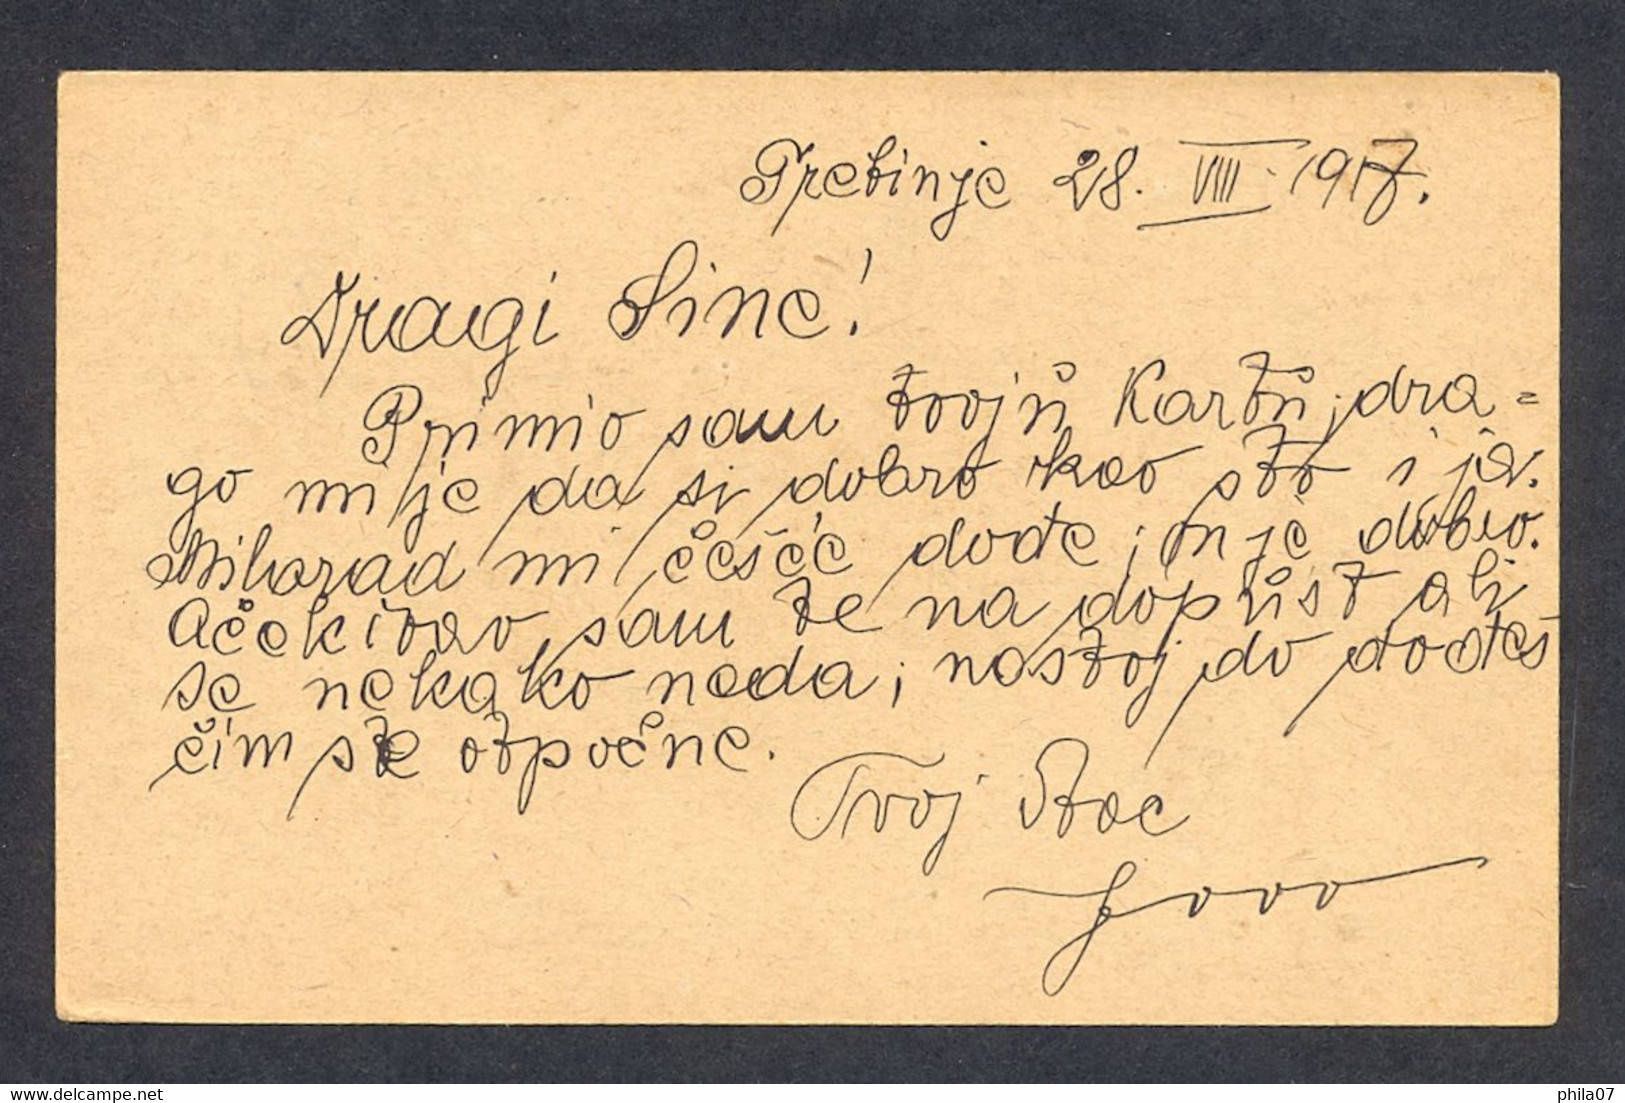 Trebinje 28. VIII. 1917.
Dragi Sine!
Primio sam tvoju kartu, dra=
go mi je da si dobro kao što i ja.
Milorad mi češće dođe, i nje dobio.
Ačekivao sam te na dopust ali
se nekako neda, nastoj do dođeš
čim se otpočne.
Tvoj Otac
Jovo
phila07